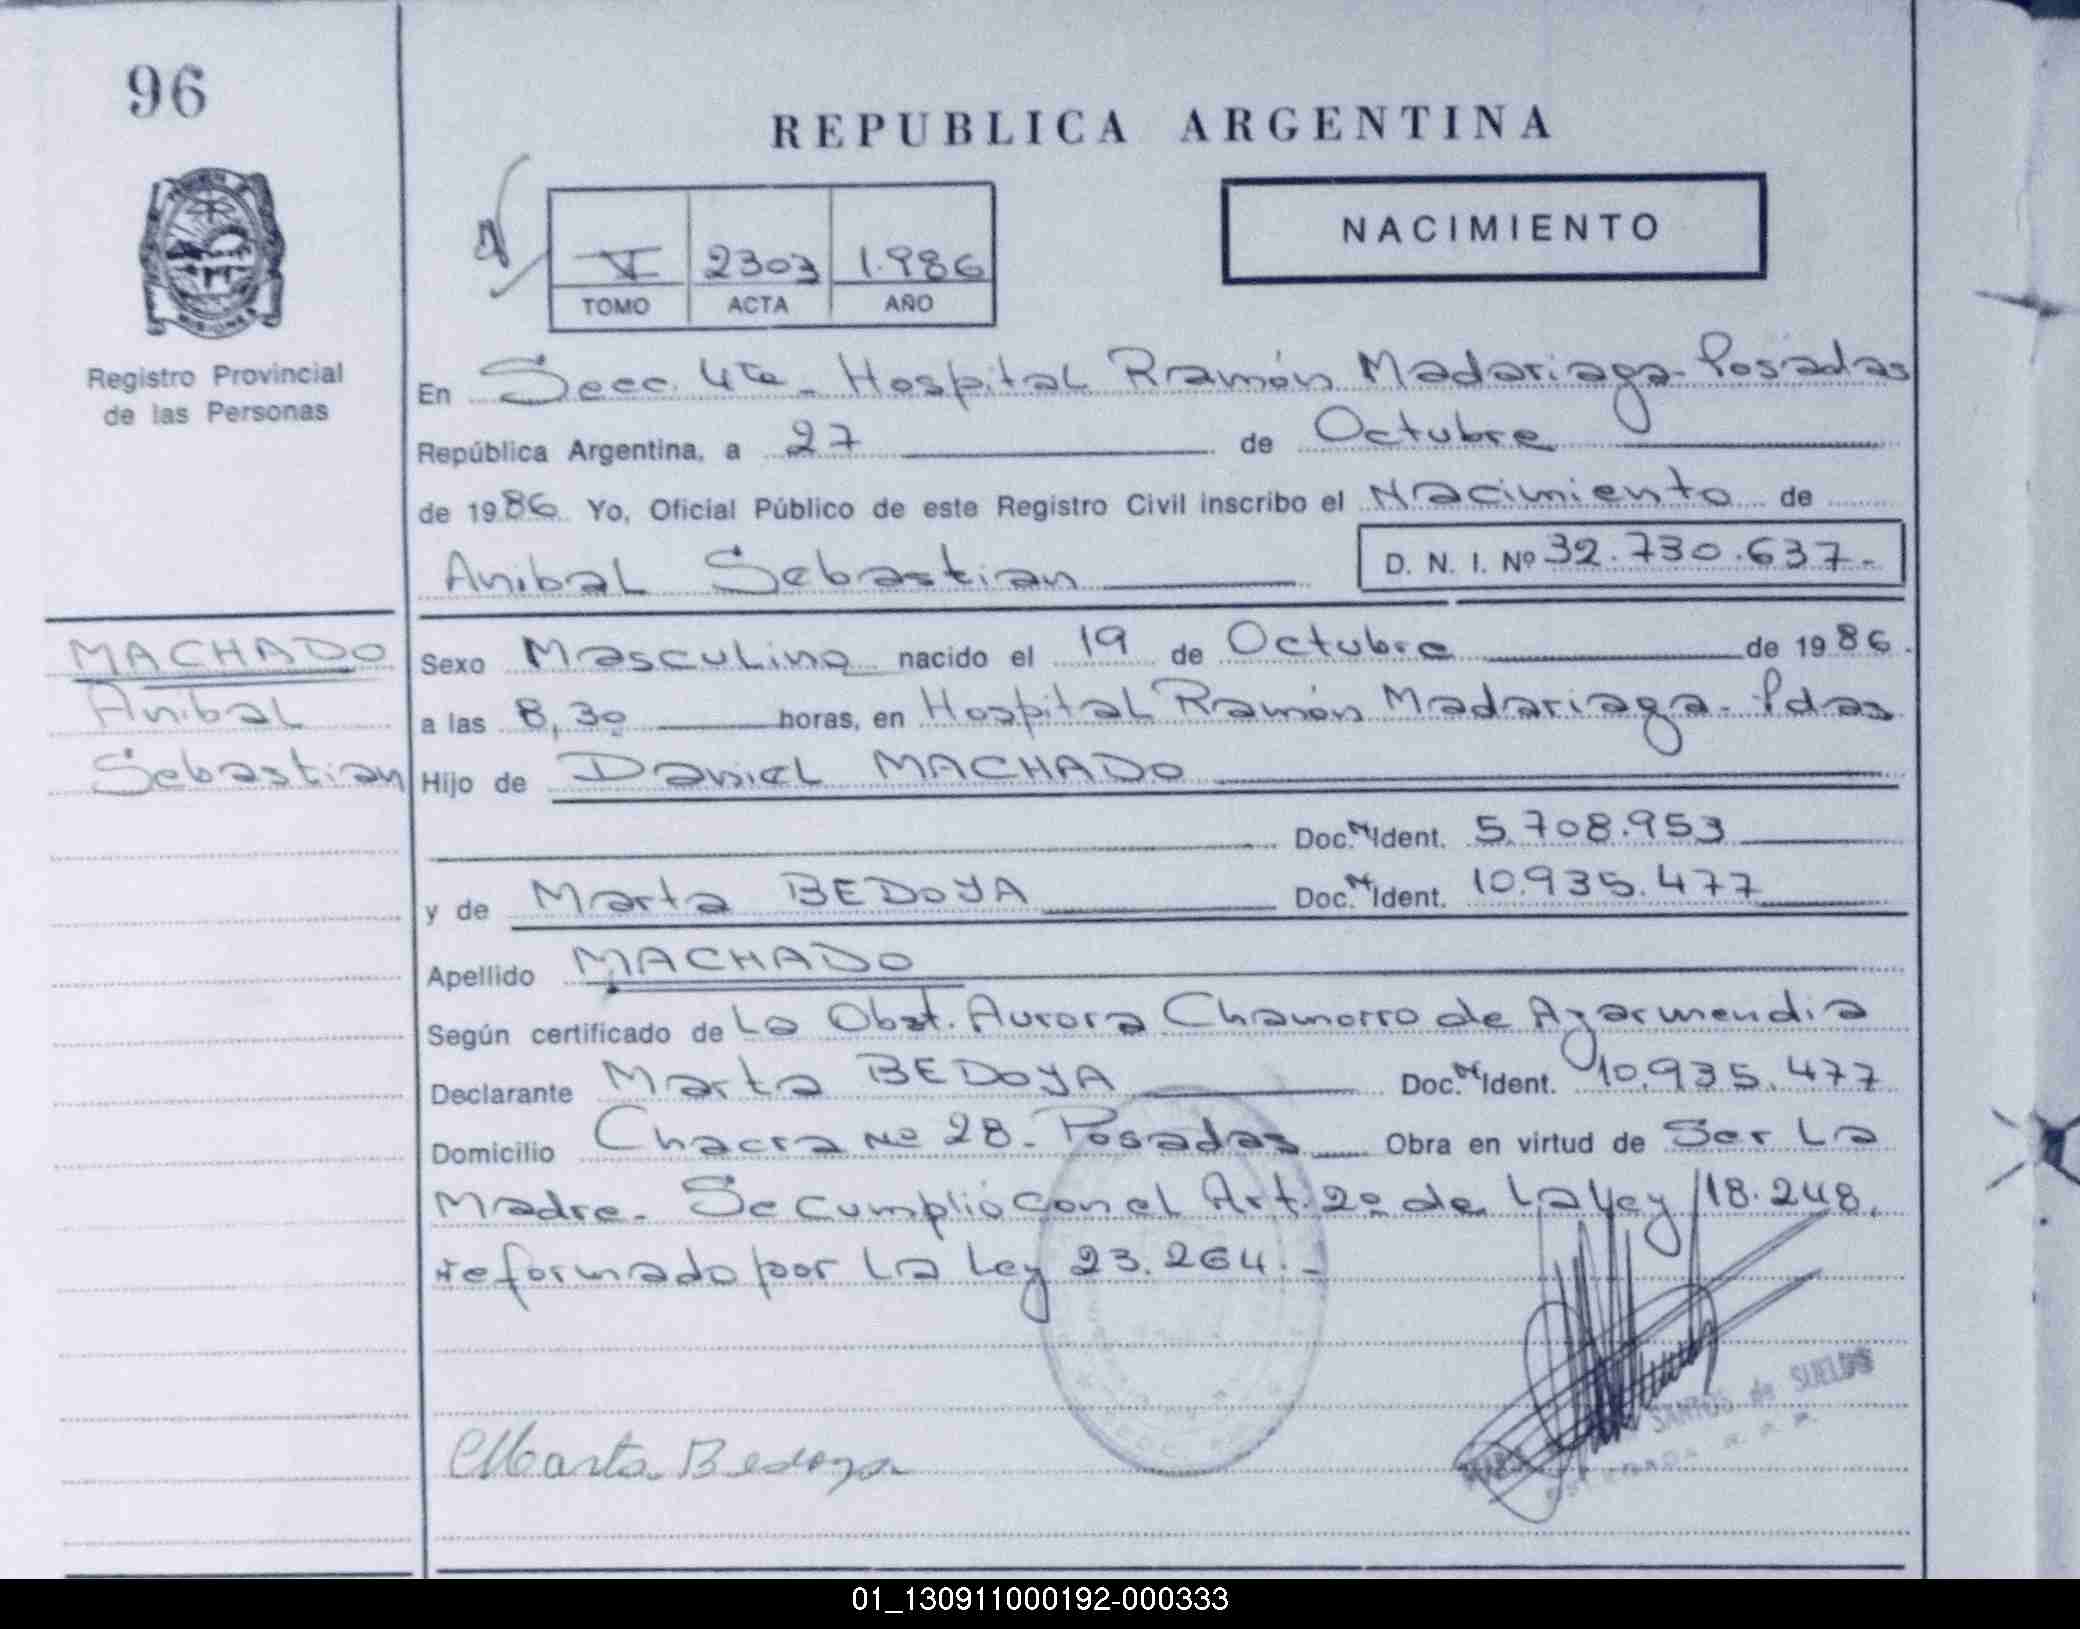 96
REPUBLICA ARGENTINA
NACIMIENTO
V 2303 1.986
TOMO ACTA AÑO
Registro Provincial
de las Personas
En Secc. 4ta - Hospital Ramón Madariaga - Posadas
República Argentina, a 27 de Octubre
de 1986 Yo, Oficial Público de este Registro Civil inscribo el Nacimiento de
Anibal Sebastian D. N. I. Nº 32.730.637.-
MACHADO
Anibal
Sebastian
Sexo Masculino nacido el 19 de Octubre de 1986.
a las 8,30 horas, en Hospital Ramón Madariaga - Pdas
Hijo de Daniel MACHADO
Doc. Ident. 5.708.953
y de Marta BEDOYA Doc. Ident. 10.935.477
Apellido MACHADO
Según certificado de La Obst. Aurora Chamorro de Azarmendia
Declarante Marta BEDOYA Doc. Ident. 10.935.477
Domicilio Chacra Nº 28 - Posadas Obra en virtud de Ser La
Madre. Se cumplió con el Art. 2º de La Ley 18.248,
reformado por La Ley 23.264.-
Marta Bedoya
SANTOS de SUELDO
01_130911000192-000333